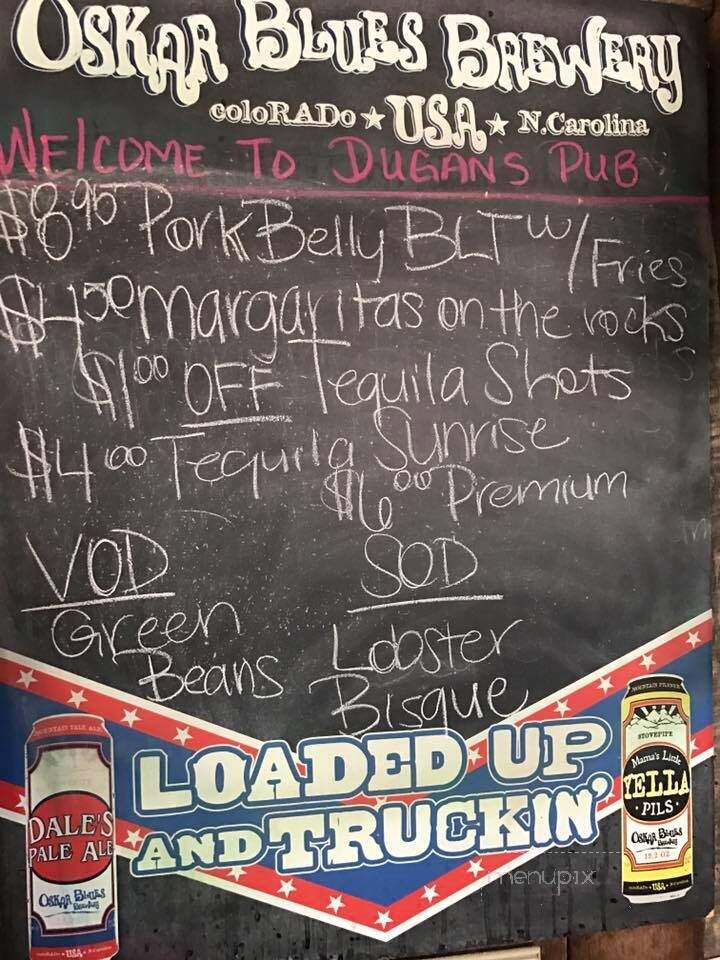 OSKAR BLUES BREWERY
coloRADo ★ USA ★ N.Carolina
WELCOME TO DUGANS PUB
$8.95 Pork Belly BLT w/Fries
$4.50 margaritas on the rocks
$1.00 OFF Tequila Shots
$4.00 Tequila Sunrise
$6.00 Premium
VOD SOD
Green Lobster
Beans Bisque
LOADED UP
AND TRUCKIN'
MOUNTAIN PALE ALE
DALE'S
PALE ALE
OSKAR BLUES
USA
STOVEPIPE
Mama's Little
YELLA
PILS
OSKAR BLUES
19.2 OZ
USA
menupix